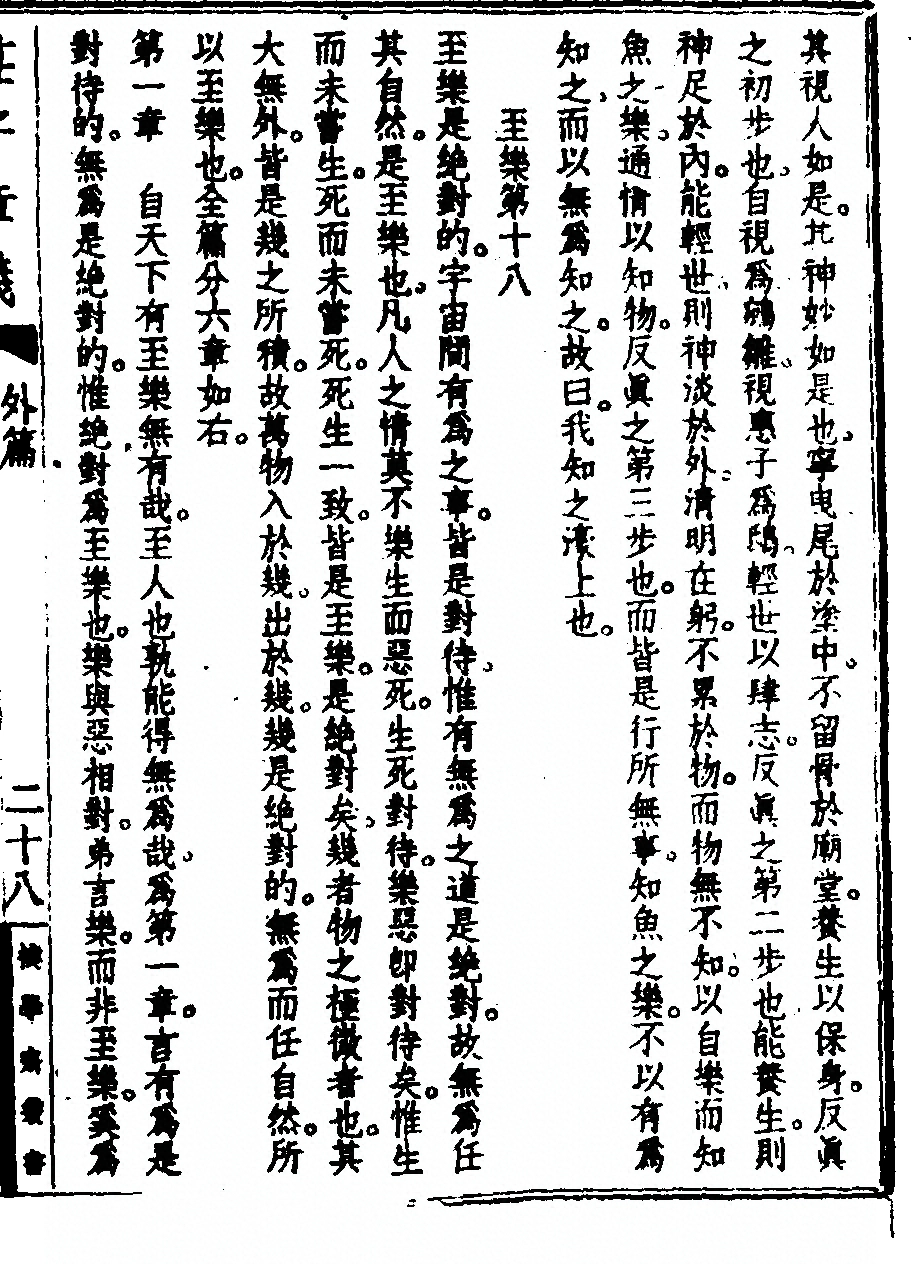 其視人如是。其神妙如是也、寧曳尾於塗中、不留骨於廟堂。養生以保身。反眞
之初步也、自視爲鵷雛、視惠子爲鴟、輕世以肆志。反眞之第二步也能養生。則
神足於內。能輕世則神淡於外、淸明在躬。不累於物。而物無不知。以自樂而知
魚之樂、通情以知物。反眞之第三步也。而皆是行所無事。知魚之樂。不以有爲
知之、而以無爲知之。故曰。我知之濠上也。
至樂第十八
至樂是絶對的。宇宙間有爲之事。皆是對待、惟有無爲之道是絶對。故無爲任
其自然。是至樂也。凡人之情莫不樂生而惡死。生死對待。樂惡卽對待矣。惟生
而未嘗生。死而未嘗死。死生一致。皆是至樂。是絶對矣、幾者物之極微者也。其
大無外。皆是幾之所積。故萬物入於幾、出於幾。幾是絶對的。無爲而任自然。所
以至樂也。全篇分六章如右。
第一章　自天下有至樂無有哉。至人也孰能得無爲哉、爲第一章。言有爲是
對待的。無爲是絶對的。惟絶對爲至樂也。樂與惡相對。弟言樂。而非至樂。奚爲
外篇
二十八
樸學齋叢書